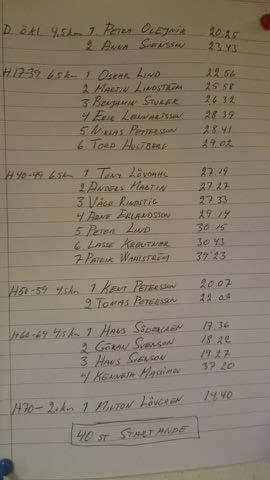 D ÖKI 4,5 km 1 PETRA OLEJNIK 20.25
2 ANNA SVENSSON 23.43
H17-39 6,5 km 1 OSKAR LIND 22.56
2 MARTIN LINDSTRÖM 25.58
3 BENJAMIN 26.32
4 ERIK LENNARTSSON 28.39
5 NIKLAS PETTERSSON 28.41
6 TORD HULTBERG 29.02
H40-49 6,5 km 1 TONY LÖVDAHL 27.19
2 ANDERS MARTIN 27.27
3 VÅGE RINDSTIG 27.33
4 ARNE ERLANDSSON 29.14
5 PETER LIND 30.15
6 LASSE KREUTNER 30.43
7 PATRIK WAHLSTRÖM 39.23
H50-59 4,5 km 1 KENT PETERSON 20.07
2 TOMAS PETERSSON 22.03
H60-69 4,5 km 1 HANS SÖDERGREN 17.36
2 GÖRAN SVENSON 18.22
3 HANS SVENSON 19.27
4 KENNETH 37.20
H70- 2,5 km 1 MILTON LÖVGREN 14.40
40 ST STARTANDE